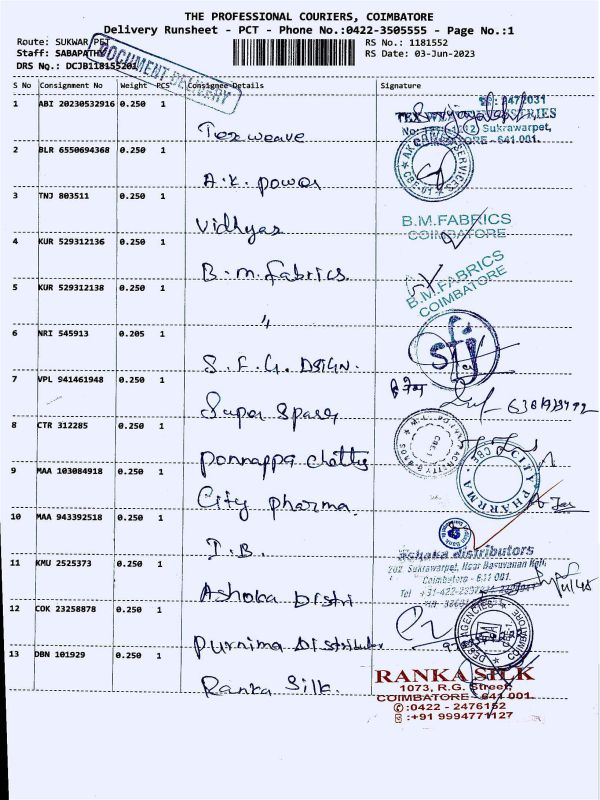 THE PROFESSIONAL COURIERS, COIMBATORE
Delivery Runsheet - PCT - Phone No.:0422-3505555 - Page No.:1
Route: SUKWAR PET
RS No.: 1181552
Staff: SABAPATHY
RS Date: 03-Jun-2023
DRS No.: DCJB118155201
DOCUMENT DELIVERY
S No Consignment No Weight PCS Consignee Details Signature
1 ABI 20230532916 0.250 1
Tex weave
2 BLR 6550694368 0.250 1
A.K. power
3 TNJ 803511 0.250 1
Vidhyas
B.M.FABRICS
COIMBATORE
4 KUR 529312136 0.250 1
B.M. Fabrics
B.M.FABRICS
COIMBATORE
5 KUR 529312138 0.250 1
"
6 NRI 545913 0.205 1
S.F.G. DSIGN.
sfj
7 VPL 941461948 0.250 1
Super Spares
8 CTR 312285 0.250 1
ponnappa chetty
9 MAA 103084918 0.250 1
City pharma
CITY PHARMA
10 MAA 943392518 0.250 1
I.B.
11 KMU 2525373 0.250 1
Ashoka Distri
ashoka distributors
202, Sukrawarpet, Near Basuvanan Koil,
Coimbatore - 641 001.
12 COK 23258878 0.250 1
Purnima Distributor
AGENCIES
COIMBATORE
13 DBN 101929 0.250 1
Ranka Silk.
RANKA SILK
1073, R.G. Street,
COIMBATORE - 641 001
:0422 - 2476152
:+91 9994771127